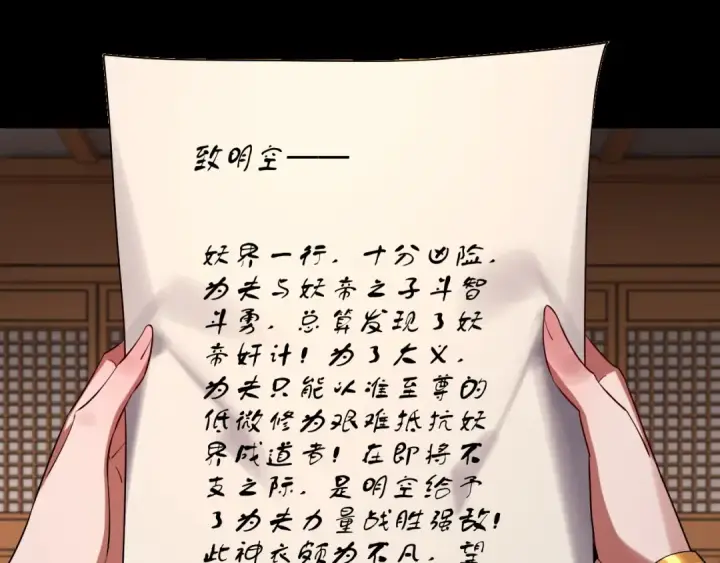 致明空——
妖界一行，十分凶险，
为夫与妖帝之子斗智
斗勇，总算发现了妖
帝奸计！为了大义，
为夫只能以准至尊的
低微修为艰难抵抗妖
界成道者！在即将不
支之际，是明空给予
了为夫力量战胜强敌！
此神衣颇为不凡，望